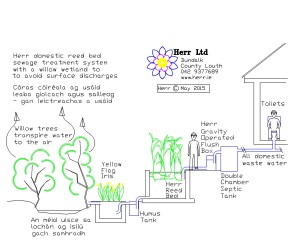 Herr domestic reed bed
sewage treatment system
with a willow wetland to
to avoid surface discharges
Córas cóiréala ag usáid
leaba giolcach agus saileog
- gan leictreachas a usáid
Herr Ltd
Dundalk
County Louth
042 9377689
www.herr.ie
Herr © May 2015
Willow trees
transpire water
to the air
Yellow
Flag
Iris
Herr
Gravity
Operated
Flush
Box
Toilets
All domestic
waste water
Herr
Reed
Bed
Double
Chamber
Septic
Tank
Humus
Tank
An méid uisce sa
lochán ag ísliú
gach samhradh